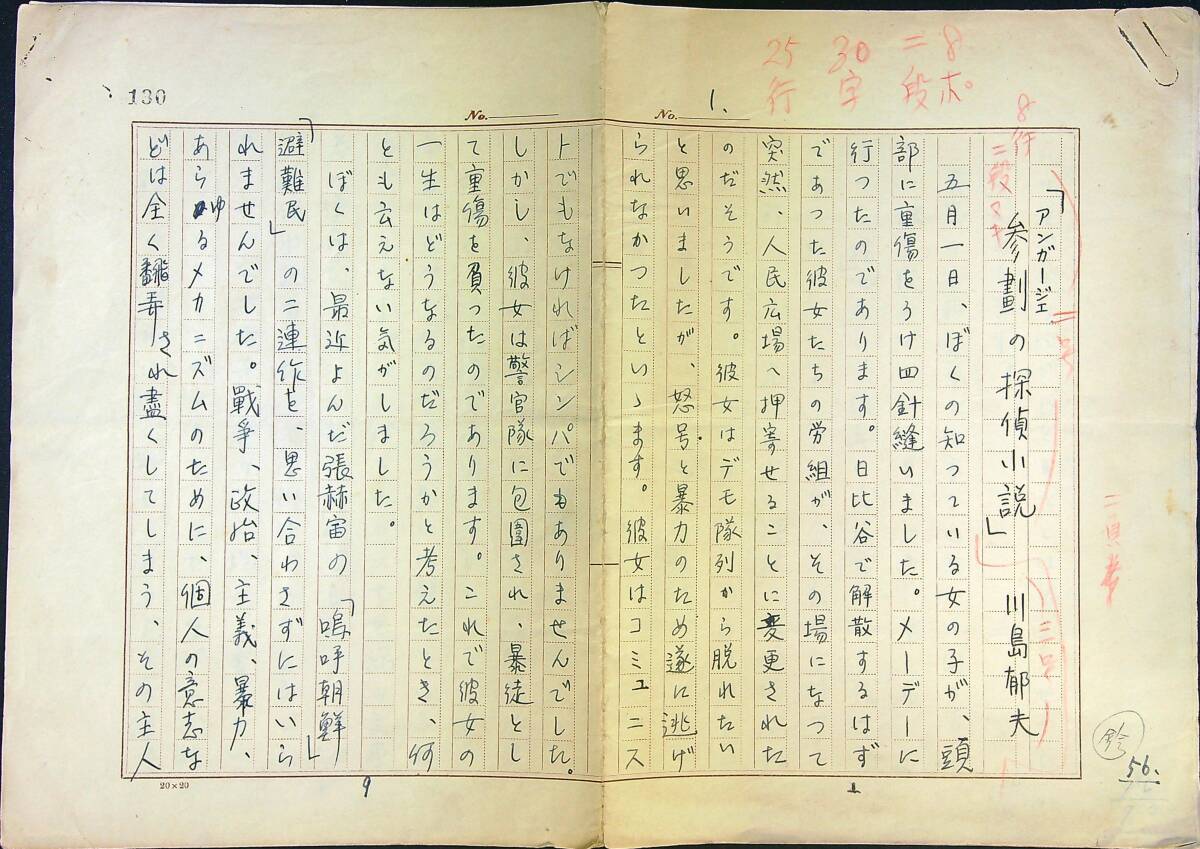 8ポ
二段
30字
25行
8行
二段ヌキ
二号
三号
1.
No.
No.
130
「参劃の探偵小説」 川島郁夫
アンガージェ
五月一日、ぼくの知つている女の子が、頭
部に重傷をうけ四針縫いました。メーデーに
行つたのであります。日比谷で解散するはず
であつた彼女たちの労組が、その場になつて
突然、人民広場へ押寄せることに変更された
のだそうです。彼女はデモ隊列から脱れたい
と思いましたが、怒号と暴力のため遂に逃げ
られなかつたといゝます。彼女はコミュニス
トでもなければシンパでもありませんでした。
しかし、彼女は警官隊に包圍され、暴徒とし
て重傷を負ったのであります。これで彼女の
一生はどうなるのだろうかと考えたとき、何
とも云えない気がしました。
ぼくは、最近よんだ張赫宙の「嗚呼朝鮮」
「避難民」の二連作を、思い合わさずにはいら
れませんでした。戰爭、政治、主義、暴力、
あらゆるメカニズムのために、個人の意志な
どは全く飜弄され盡くしてしまう、その主人
20×20
9
1
鈴
56.